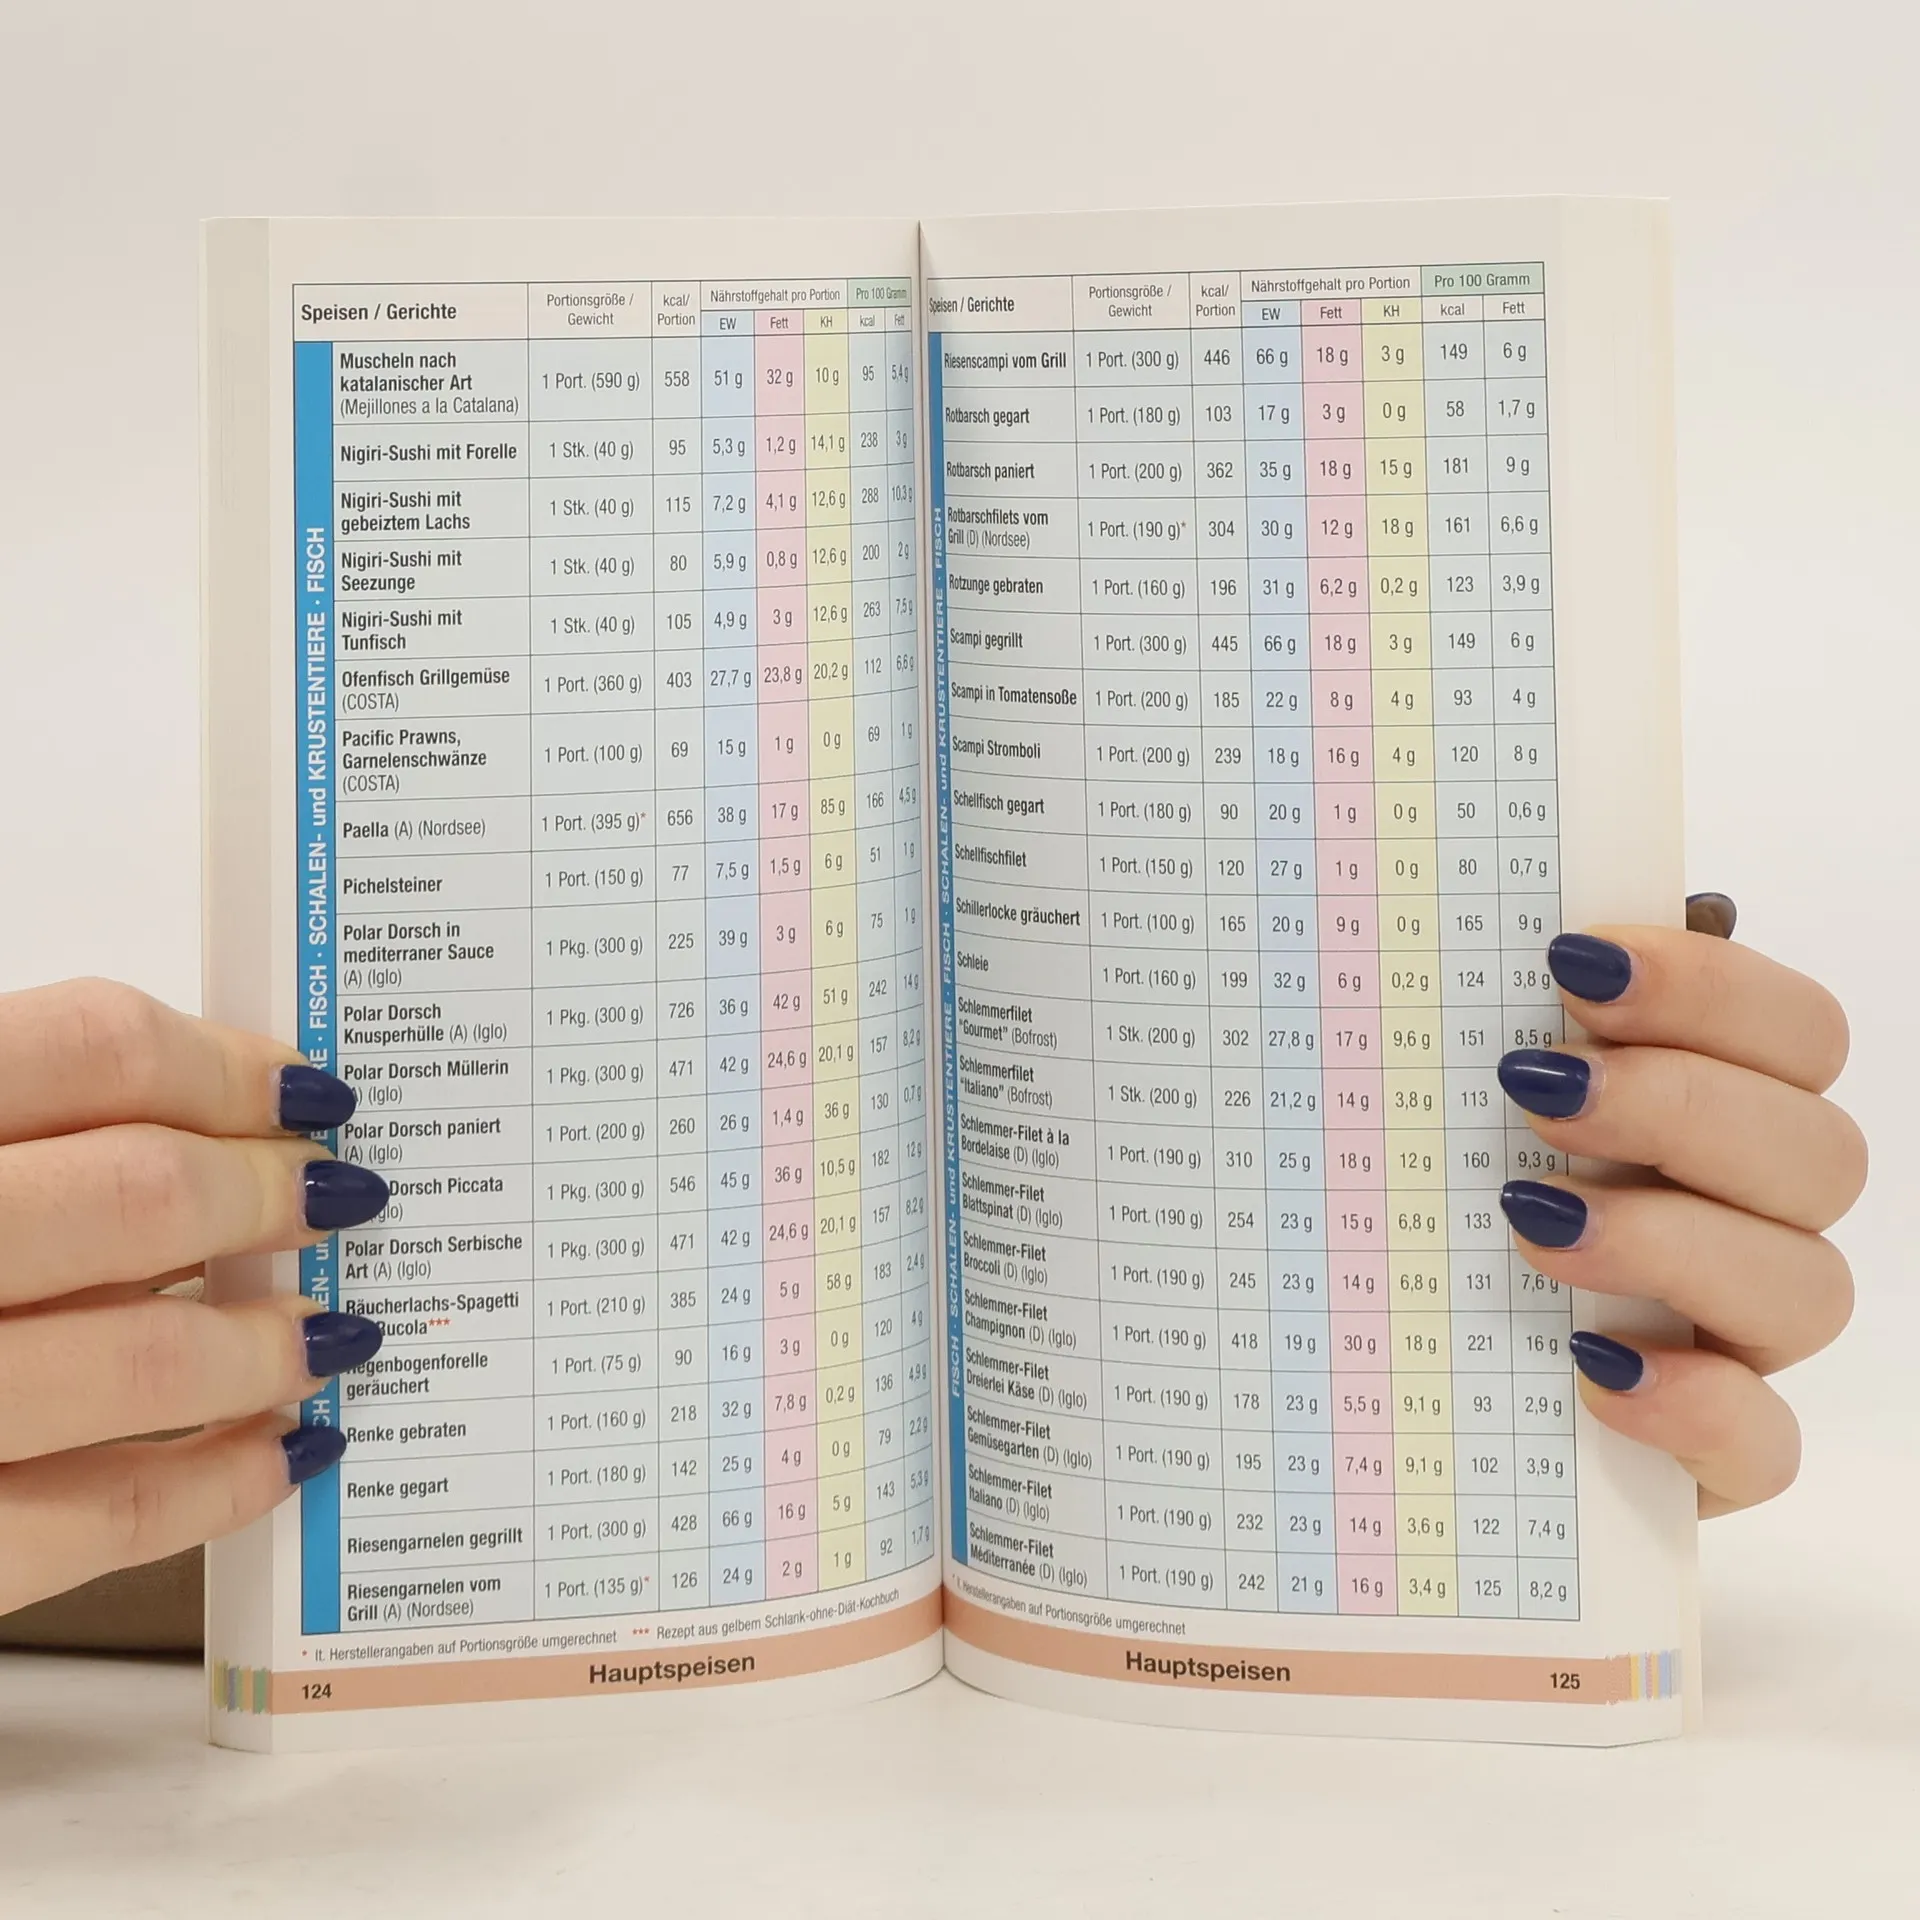 Speisen / Gerichte Portionsgröße / Gewicht kcal/ Portion Nährstoffgehalt pro Portion Pro 100 Gramm
EW Fett KH kcal Fett
FISCH · SCHALEN- und KRUSTENTIERE · FISCH
Muscheln nach
katalanischer Art
(Mejillones a la Catalana) 1 Port. (590 g) 558 51 g 32 g 10 g 95 5,4 g
Nigiri-Sushi mit Forelle 1 Stk. (40 g) 95 5,3 g 1,2 g 14,1 g 238 3 g
Nigiri-Sushi mit
gebeiztem Lachs 1 Stk. (40 g) 115 7,2 g 4,1 g 12,6 g 288 10,3 g
Nigiri-Sushi mit
Seezunge 1 Stk. (40 g) 80 5,9 g 0,8 g 12,6 g 200 2 g
Nigiri-Sushi mit
Tunfisch 1 Stk. (40 g) 105 4,9 g 3 g 12,6 g 263 7,5 g
Ofenfisch Grillgemüse
(COSTA) 1 Port. (360 g) 403 27,7 g 23,8 g 20,2 g 112 6,6 g
Pacific Prawns,
Garnelenschwänze
(COSTA) 1 Port. (100 g) 69 15 g 1 g 0 g 69 1 g
Paella (A) (Nordsee) 1 Port. (395 g)* 656 38 g 17 g 85 g 166 4,5 g
Pichelsteiner 1 Port. (150 g) 77 7,5 g 1,5 g 6 g 51 1 g
Polar Dorsch in
mediterraner Sauce
(A) (Iglo) 1 Pkg. (300 g) 225 39 g 3 g 6 g 75 1 g
Polar Dorsch
Knusperhülle (A) (Iglo) 1 Pkg. (300 g) 726 36 g 42 g 51 g 242 14 g
Polar Dorsch Müllerin
(Iglo) 1 Pkg. (300 g) 471 42 g 24,6 g 20,1 g 157 8,2 g
Polar Dorsch paniert
(A) (Iglo) 1 Port. (200 g) 260 26 g 1,4 g 36 g 130 0,7 g
Dorsch Piccata
1 Pkg. (300 g) 546 45 g 36 g 10,5 g 182 12 g
Polar Dorsch Serbische
Art (A) (Iglo) 1 Pkg. (300 g) 471 42 g 24,6 g 20,1 g 157 8,2 g
Räucherlachs-Spagetti
Rucola*** 1 Port. (210 g) 385 24 g 5 g 58 g 183 2,4 g
Regenbogenforelle
geräuchert 1 Port. (75 g) 90 16 g 3 g 0 g 120 4 g
Renke gebraten 1 Port. (160 g) 218 32 g 7,8 g 0,2 g 136 4,9 g
Renke gegart 1 Port. (180 g) 142 25 g 4 g 0 g 79 2,2 g
Riesengarnelen gegrillt 1 Port. (300 g) 428 66 g 16 g 5 g 143 5,3 g
Riesengarnelen vom
Grill (A) (Nordsee) 1 Port. (135 g)* 126 24 g 2 g 1 g 92 1,7 g
* lt. Herstellerangaben auf Portionsgröße umgerechnet *** Rezept aus gelbem Schlank-ohne-Diät-Kochbuch
124 Hauptspeisen
Speisen / Gerichte Portionsgröße / Gewicht kcal/ Portion Nährstoffgehalt pro Portion Pro 100 Gramm
EW Fett KH kcal Fett
FISCH · SCHALEN- und KRUSTENTIERE · FISCH · SCHALEN- und KRUSTENTIERE · FISCH
Riesenscampi vom Grill 1 Port. (300 g) 446 66 g 18 g 3 g 149 6 g
Rotbarsch gegart 1 Port. (180 g) 103 17 g 3 g 0 g 58 1,7 g
Rotbarsch paniert 1 Port. (200 g) 362 35 g 18 g 15 g 181 9 g
Rotbarschfilets vom
Grill (D) (Nordsee) 1 Port. (190 g)* 304 30 g 12 g 18 g 161 6,6 g
Rotzunge gebraten 1 Port. (160 g) 196 31 g 6,2 g 0,2 g 123 3,9 g
Scampi gegrillt 1 Port. (300 g) 445 66 g 18 g 3 g 149 6 g
Scampi in Tomatensoße 1 Port. (200 g) 185 22 g 8 g 4 g 93 4 g
Scampi Stromboli 1 Port. (200 g) 239 18 g 16 g 4 g 120 8 g
Schellfisch gegart 1 Port. (180 g) 90 20 g 1 g 0 g 50 0,6 g
Schellfischfilet 1 Port. (150 g) 120 27 g 1 g 0 g 80 0,7 g
Schillerlocke gräuchert 1 Port. (100 g) 165 20 g 9 g 0 g 165 9 g
Schleie 1 Port. (160 g) 199 32 g 6 g 0,2 g 124 3,8 g
Schlemmerfilet
"Gourmet" (Bofrost) 1 Stk. (200 g) 302 27,8 g 17 g 9,6 g 151 8,5 g
Schlemmerfilet
"Italiano" (Bofrost) 1 Stk. (200 g) 226 21,2 g 14 g 3,8 g 113
Schlemmer-Filet à la
Bordelaise (D) (Iglo) 1 Port. (190 g) 310 25 g 18 g 12 g 160 9,3 g
Schlemmer-Filet
Blattspinat (D) (Iglo) 1 Port. (190 g) 254 23 g 15 g 6,8 g 133
Schlemmer-Filet
Broccoli (D) (Iglo) 1 Port. (190 g) 245 23 g 14 g 6,8 g 131 7,6 g
Schlemmer-Filet
Champignon (D) (Iglo) 1 Port. (190 g) 418 19 g 30 g 18 g 221 16 g
Schlemmer-Filet
Dreierlei Käse (D) (Iglo) 1 Port. (190 g) 178 23 g 5,5 g 9,1 g 93 2,9 g
Schlemmer-Filet
Gemüsegarten (D) (Iglo) 1 Port. (190 g) 195 23 g 7,4 g 9,1 g 102 3,9 g
Schlemmer-Filet
Italiano (D) (Iglo) 1 Port. (190 g) 232 23 g 14 g 3,6 g 122 7,4 g
Schlemmer-Filet
Méditerranée (D) (Iglo) 1 Port. (190 g) 242 21 g 16 g 3,4 g 125 8,2 g
* lt. Herstellerangaben auf Portionsgröße umgerechnet
Hauptspeisen 125